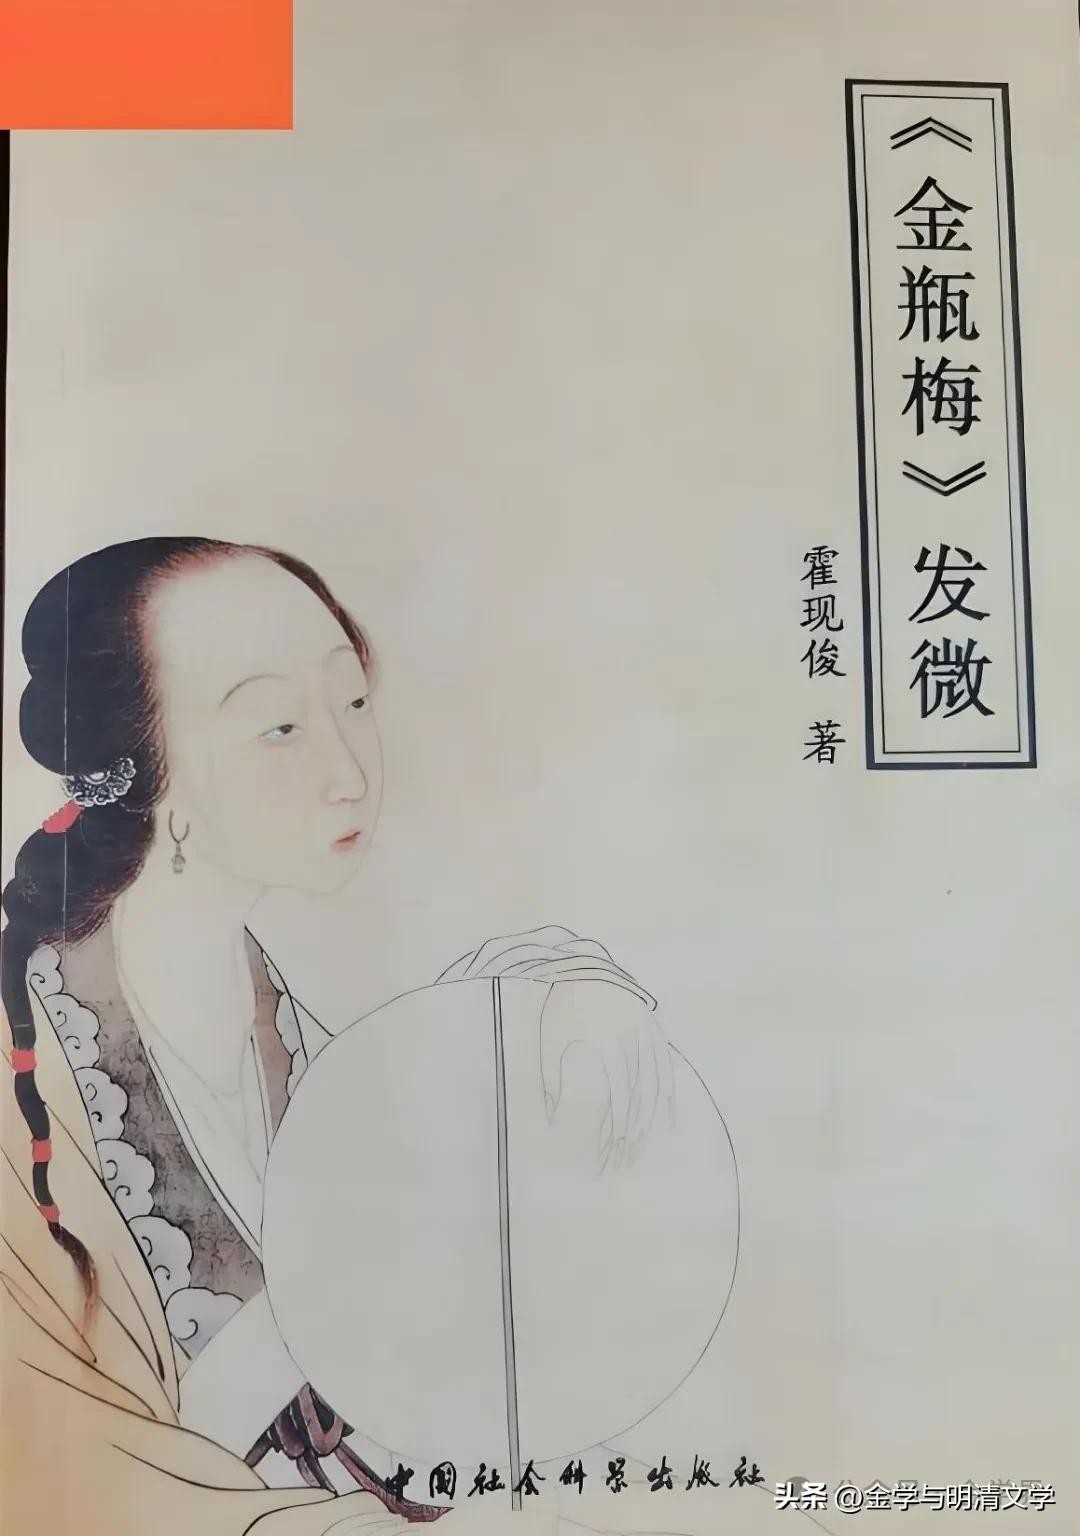 《金瓶梅》发微
霍现俊 著
中国社会科学出版社
头条 @金学与明清文学